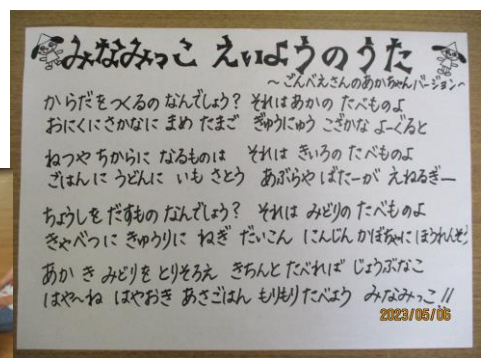 みなみっこ えいようのうた
～ごんべえさんのあかちゃんバージョン～
からだをつくるの なんでしょう? それはあかの たべものよ
おにくにさかなに まめ たまご ぎゅうにゅう こざかな よーぐると
ねつや ちからに なるものは それは きいろの たべものよ
ごはんに うどんに いも さとう あぶらや ばたーが えねるぎー
ちょうしを だすもの なんでしょう? それは みどりの たべものよ
きゃべつに きゅうりに ねぎ だいこん にんじん かぼちゃに ほうれんそう
あか き みどりを とりそろえ きちんと たべれば じょうぶなこ
はや～ね はやおき あさごはん もりもり たべよう みなみっこ!!
2023/05/06